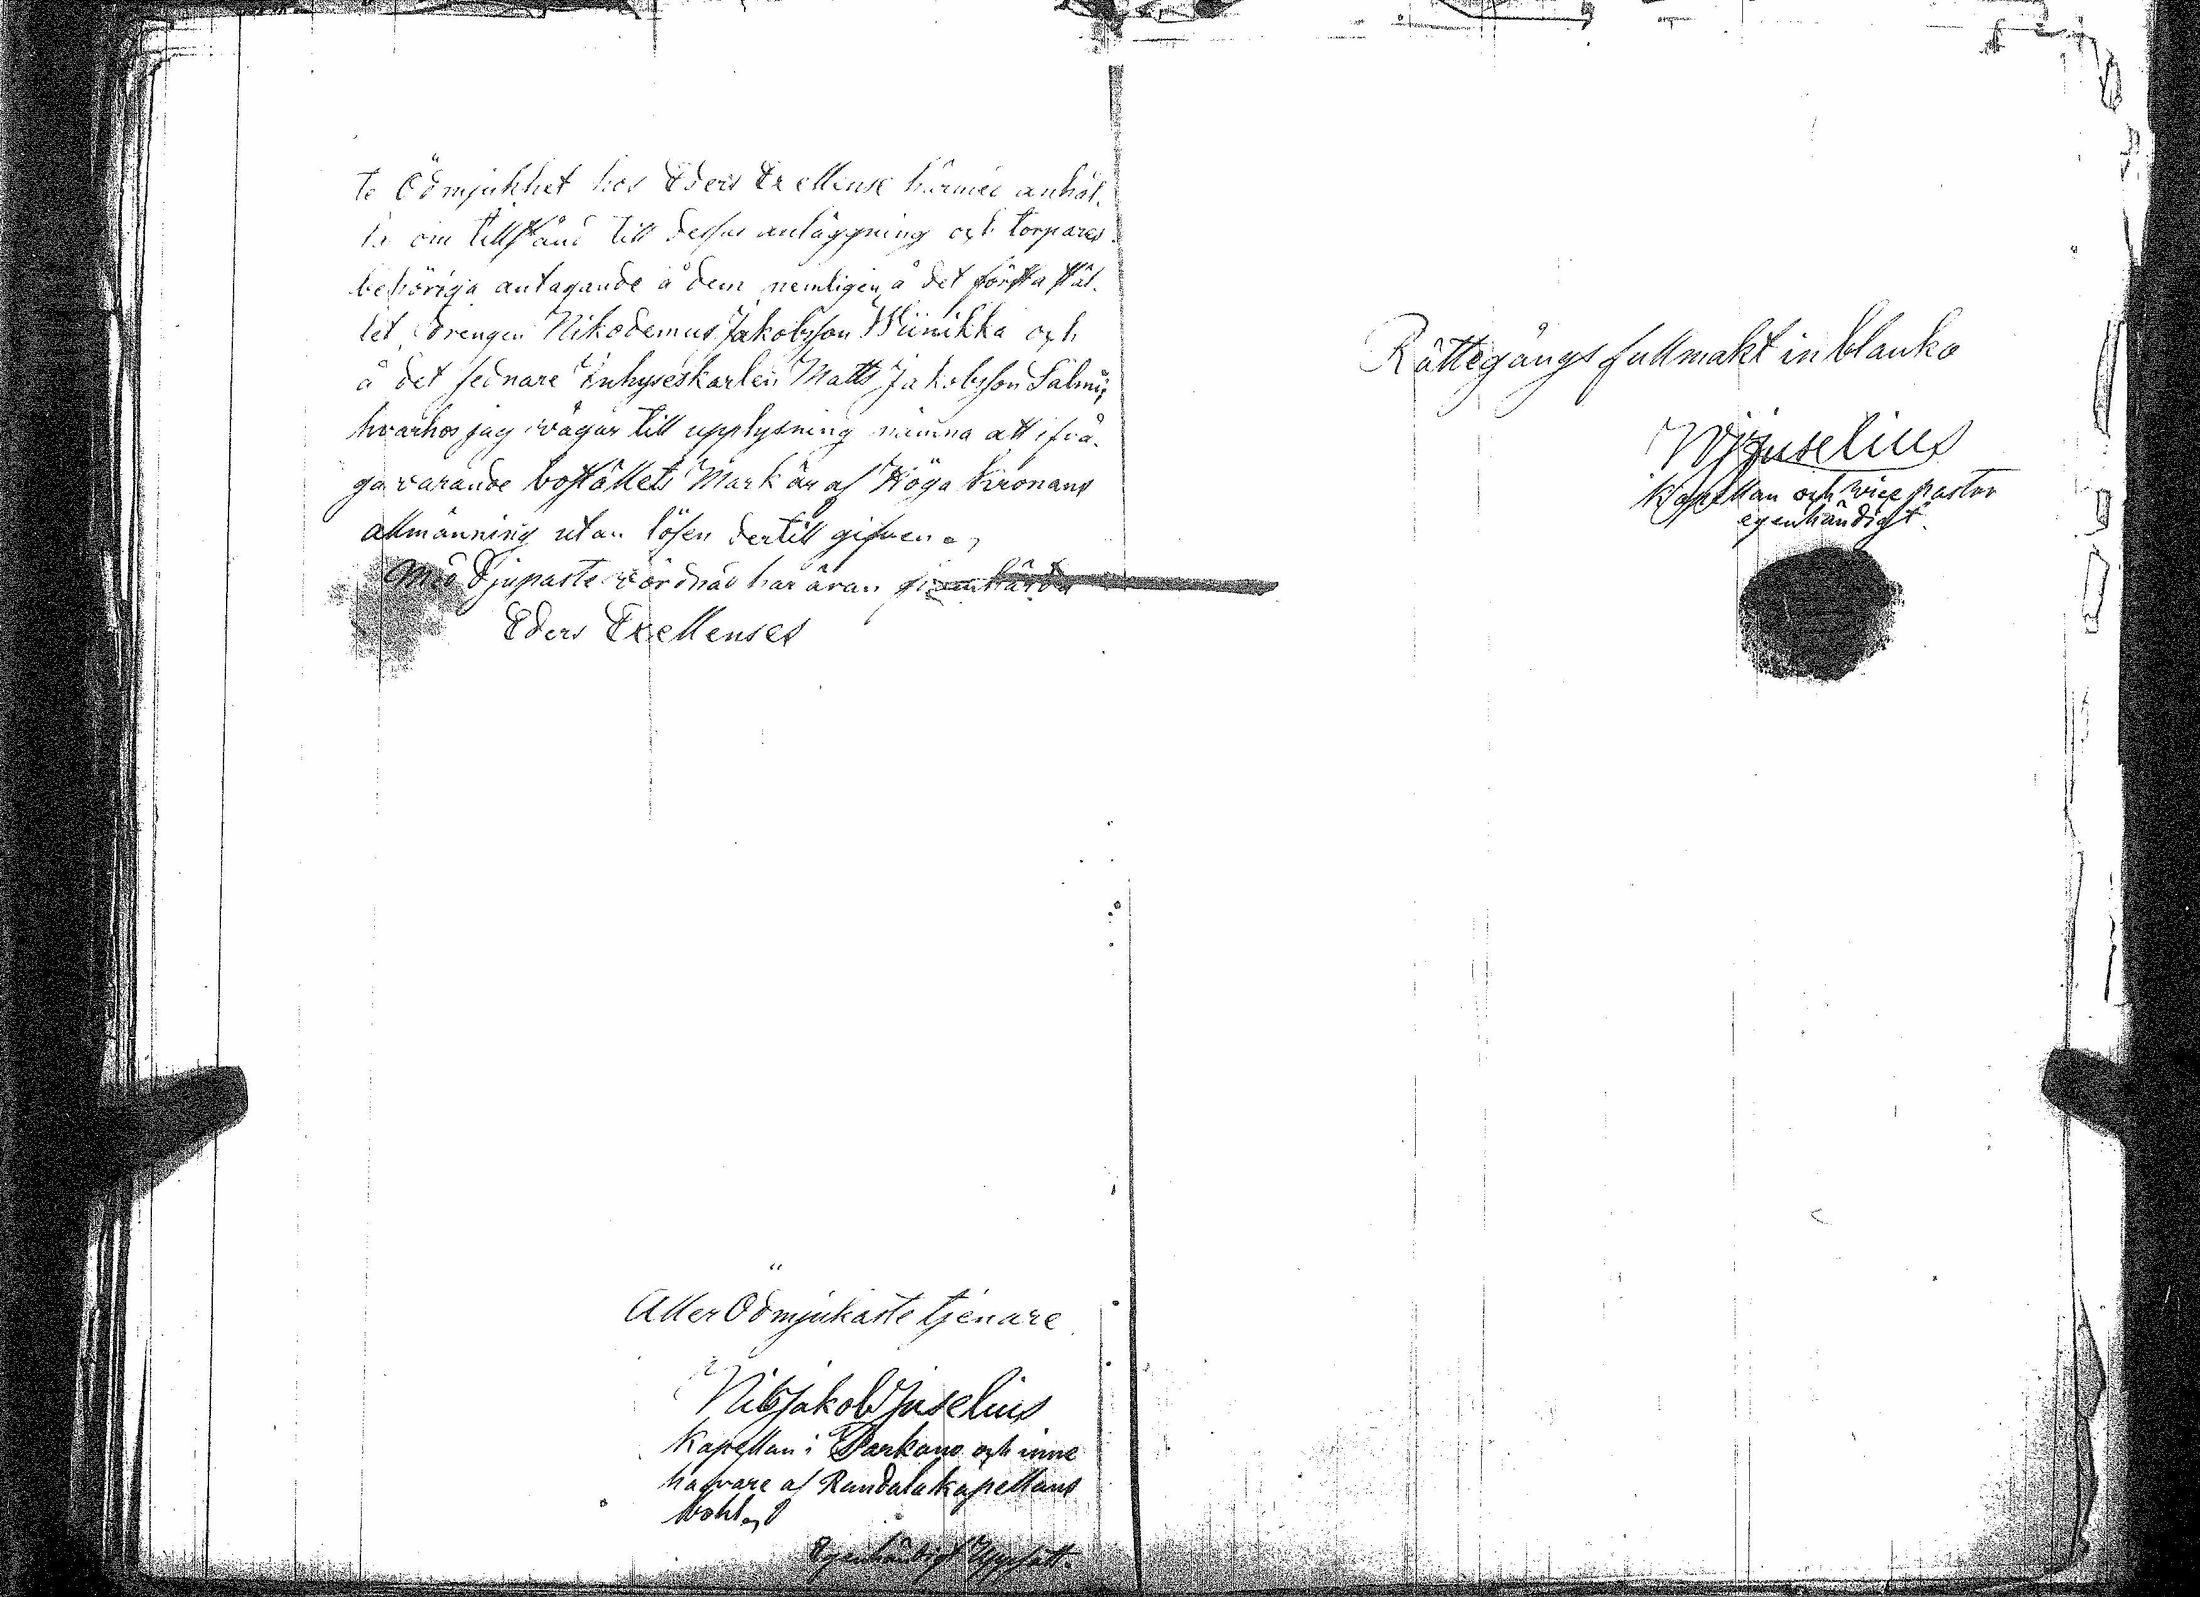 te Ödmjukhet hos Eders Exellense härmed anhål-
la om tillstånd till dessas anläggning och torpares
behöriga antagande å dem nemligen å det första stäl-
let drengen Nikodemus Jakobsson Wiinikka och
å det sednare Inhyseskarlen Matts Jakobsson Salmi;
hvarhos jag vågar till upplysning nämna att ifrå-
gavarande boställets Mark är af Höga Kronans
allmänning utan lösen dertill gifven.
Med Djupaste vördnad har äran framhärda
Eders Exellenses
Aller Ödmjukaste tjenare
Nils Jakob Juselius
Kapellan i Parkano och inne
hafvare af Randala kapellans
bohl
Egenhändigt Uppsatt.
Rättegångs fullmakt in blanko
NJJuselius
Kapellan och vice pastor
egenhändigt.